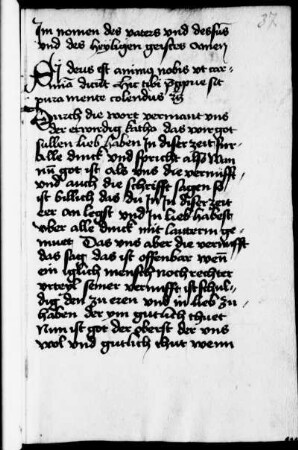 37
Im nomen des vaters und des suns
und des heyligen geistes Amen
Si deus est animus nobis ut car-
mina dicunt Hic tibi precipue sit
pura mente colendus
Durch die wort vermant uns
der erwirdig katho das wir got
sullen lieb haben In diser zeit fur
alle dinck und spricht also Nun
nu got ist als uns die vernufft
und auch die schrifft sagen so
ist billich das du In In diser zeit
eer an legst und In lieb habest
uber alle dinck mit lauterm ge-
muet Das uns aber die vernufft
das sag das ist offenbar wen
ein iglich mensch noch rechter
urteyl seiner vernufft ist schul-
dig den zu eren und in lieb zu
haben der ym gutlich thuet
Nun ist got der oberst der uns
wol und gutlich thut wenn